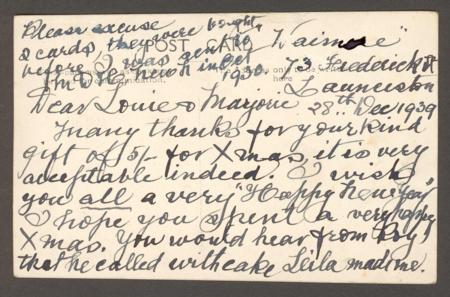 Please excuse
2 cards, they were bought
before I was sent to
1930.
POST CARD
"Waimere"
73 Frederick St
Launceston
28th Dec 1939
Dear Louie & Marjorie
Many thanks for your kind
gift of 5/- for Xmas, it is very
acceptable indeed. I wish
you all a very "Happy New Year"
I hope you spent a very happy
Xmas. You would hear from Roy,
that he called with cake Leila made me.